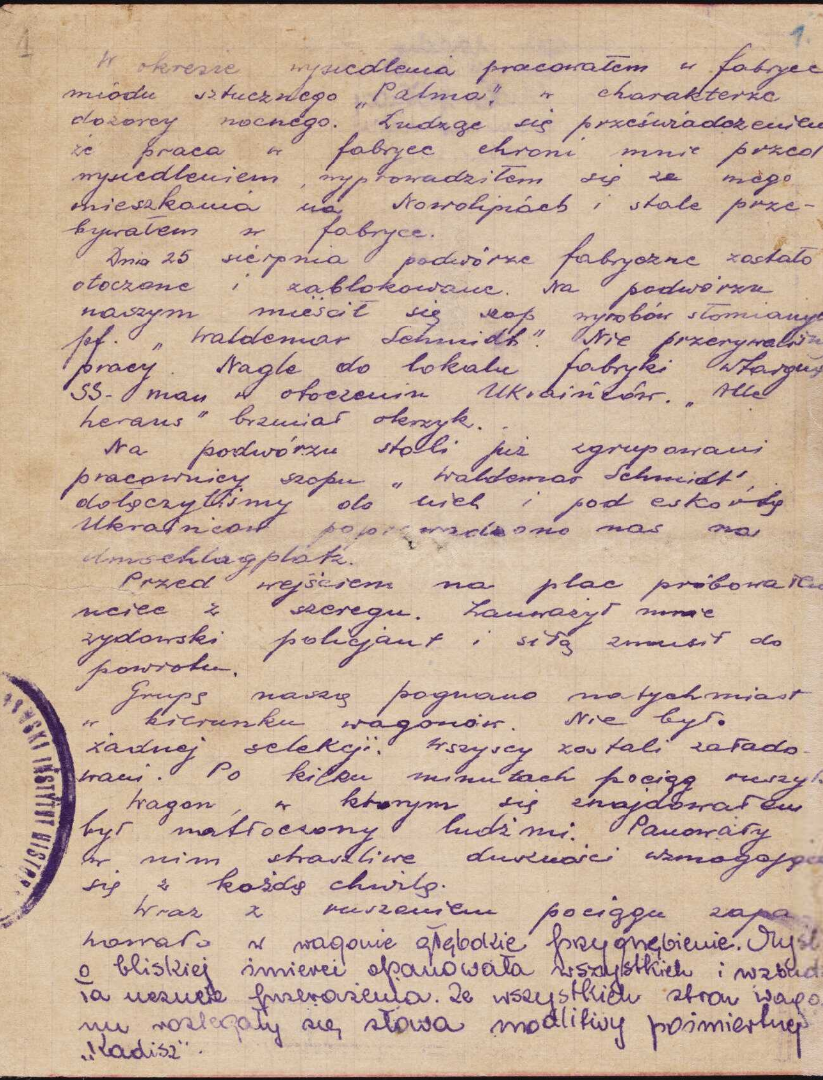 1
1.
W okresie wysiedlenia pracowałem w fabryce
miodu sztucznego „Palma", w charakterze
dozorcy nocnego. Łudząc się przeświadczeniem
że praca w fabryce chroni mnie przed
wysiedleniem, wyprowadziłem się ze mego
mieszkania na Nowolipiach i stale prze-
bywałem w fabryce.
Dnia 25 sierpnia podwórze fabryczne zostało
otoczone i zablokowane. Na podwórzu
naszym mieścił się szop wyrobów słomianych
pf. „Waldemar Schmidt". Nie przerywaliśmy
pracy. Nagle do lokalu fabryki wtargnął
SS-man w otoczeniu Ukraińców. „Alle
heraus" brzmiał okrzyk.
Na podwórzu stali już zgrupowani
pracownicy szopu „Waldemar Schmidt",
dołączyliśmy do nich i pod eskortą
Ukraińców poprowadzono nas na
Umschlagplatz.
Przed wejściem na plac próbowałem
uciec z szeregu. Zauważył mnie
żydowski policjant i siłą zmusił do
powrotu.
Grupę naszą pognano natychmiast
w kierunku wagonów. Nie było
żadnej selekcji. Wszyscy zostali załado-
wani. Po kilku minutach pociąg ruszył.
Wagon, w którym się znajdowałem
był natłoczony ludźmi. Panowały
w nim straszliwe duszności wzmagające
się z każdą chwilą.
Wraz z ruszeniem pociągu zapa
nowało w wagonie głębokie przygnębienie. Myśl
o bliskiej śmierci opanowała wszystkich i wzbudzi
ła uczucie przerażenia. Ze wszystkich stron wago
nu rozlegały się słowa modlitwy pośmiertnej
„Kadisz".
INSTYTUT HISTOR